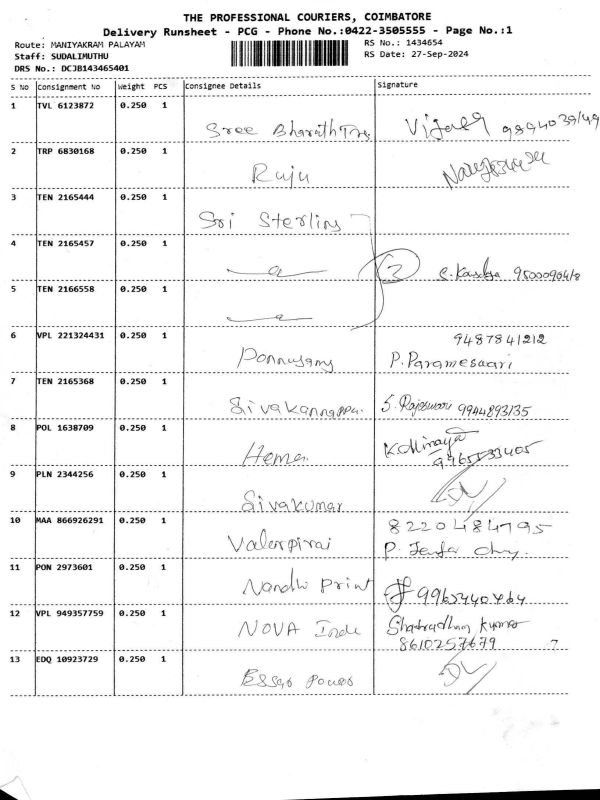 THE PROFESSIONAL COURIERS, COIMBATORE
Delivery Runsheet - PCG - Phone No.:0422-3505555 - Page No.:1
Route: MANIYAKRAM PALAYAM
RS No.: 1434654
Staff: SUDALIMUTHU
RS Date: 27-Sep-2024
DRS No.: DCJB143465401
S No Consignment No Weight PCS Consignee Details Signature
1 TVL 6123872 0.250 1
Sree
2 TRP 6830168 0.250 1
Raju
3 TEN 2165444 0.250 1
Sri Sterling
4 TEN 2165457 0.250 1
5 TEN 2166558 0.250 1
6 VPL 221324431 0.250 1 9487841212
Ponnusamy P. Parameswari
7 TEN 2165368 0.250 1
S. Rajeswari 9944893135
8 POL 1638709 0.250 1
Hema
9 PLN 2344256 0.250 1
Sivakumar
10 MAA 866926291 0.250 1 8220484795
P.
11 PON 2973601 0.250 1
Nandhi Print
12 VPL 949357759 0.250 1
NOVA 8610257679 7
13 EDQ 10923729 0.250 1